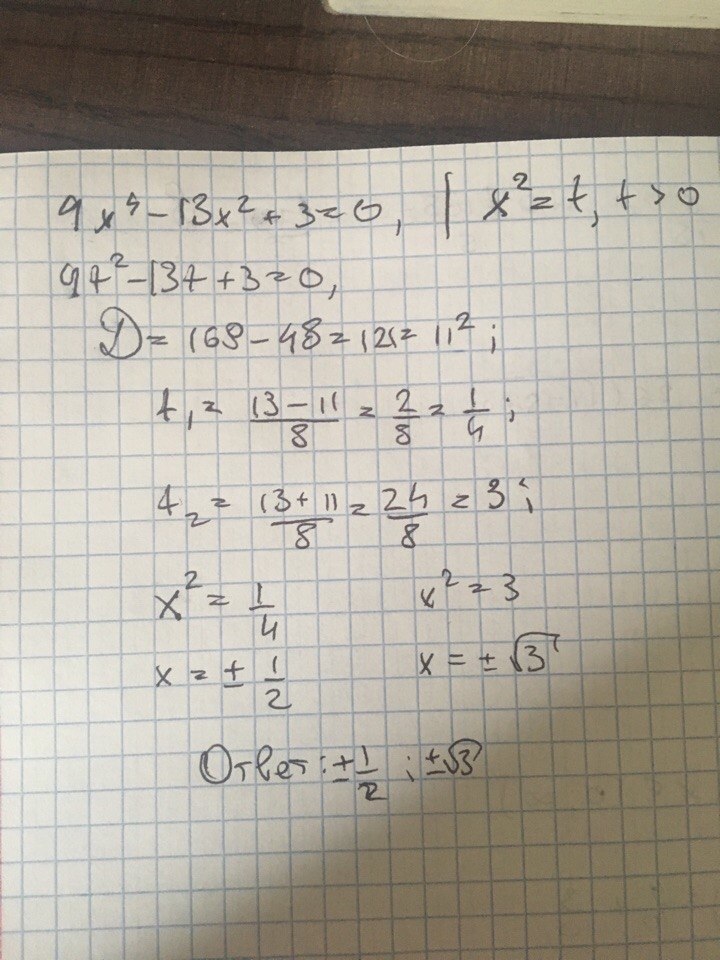 4x⁴ - 13x² + 3 = 0, | x² = t, t > 0
4t² - 13t + 3 = 0,
D = 169 - 48 = 121 = 11²;
t₁ = (13 - 11)/8 = 2/8 = 1/4;
t₂ = (13 + 11)/8 = 24/8 = 3;
x² = 1/4 x² = 3
x = ± 1/2 x = ± √3
Ответ: ± 1/2 ; ±√3